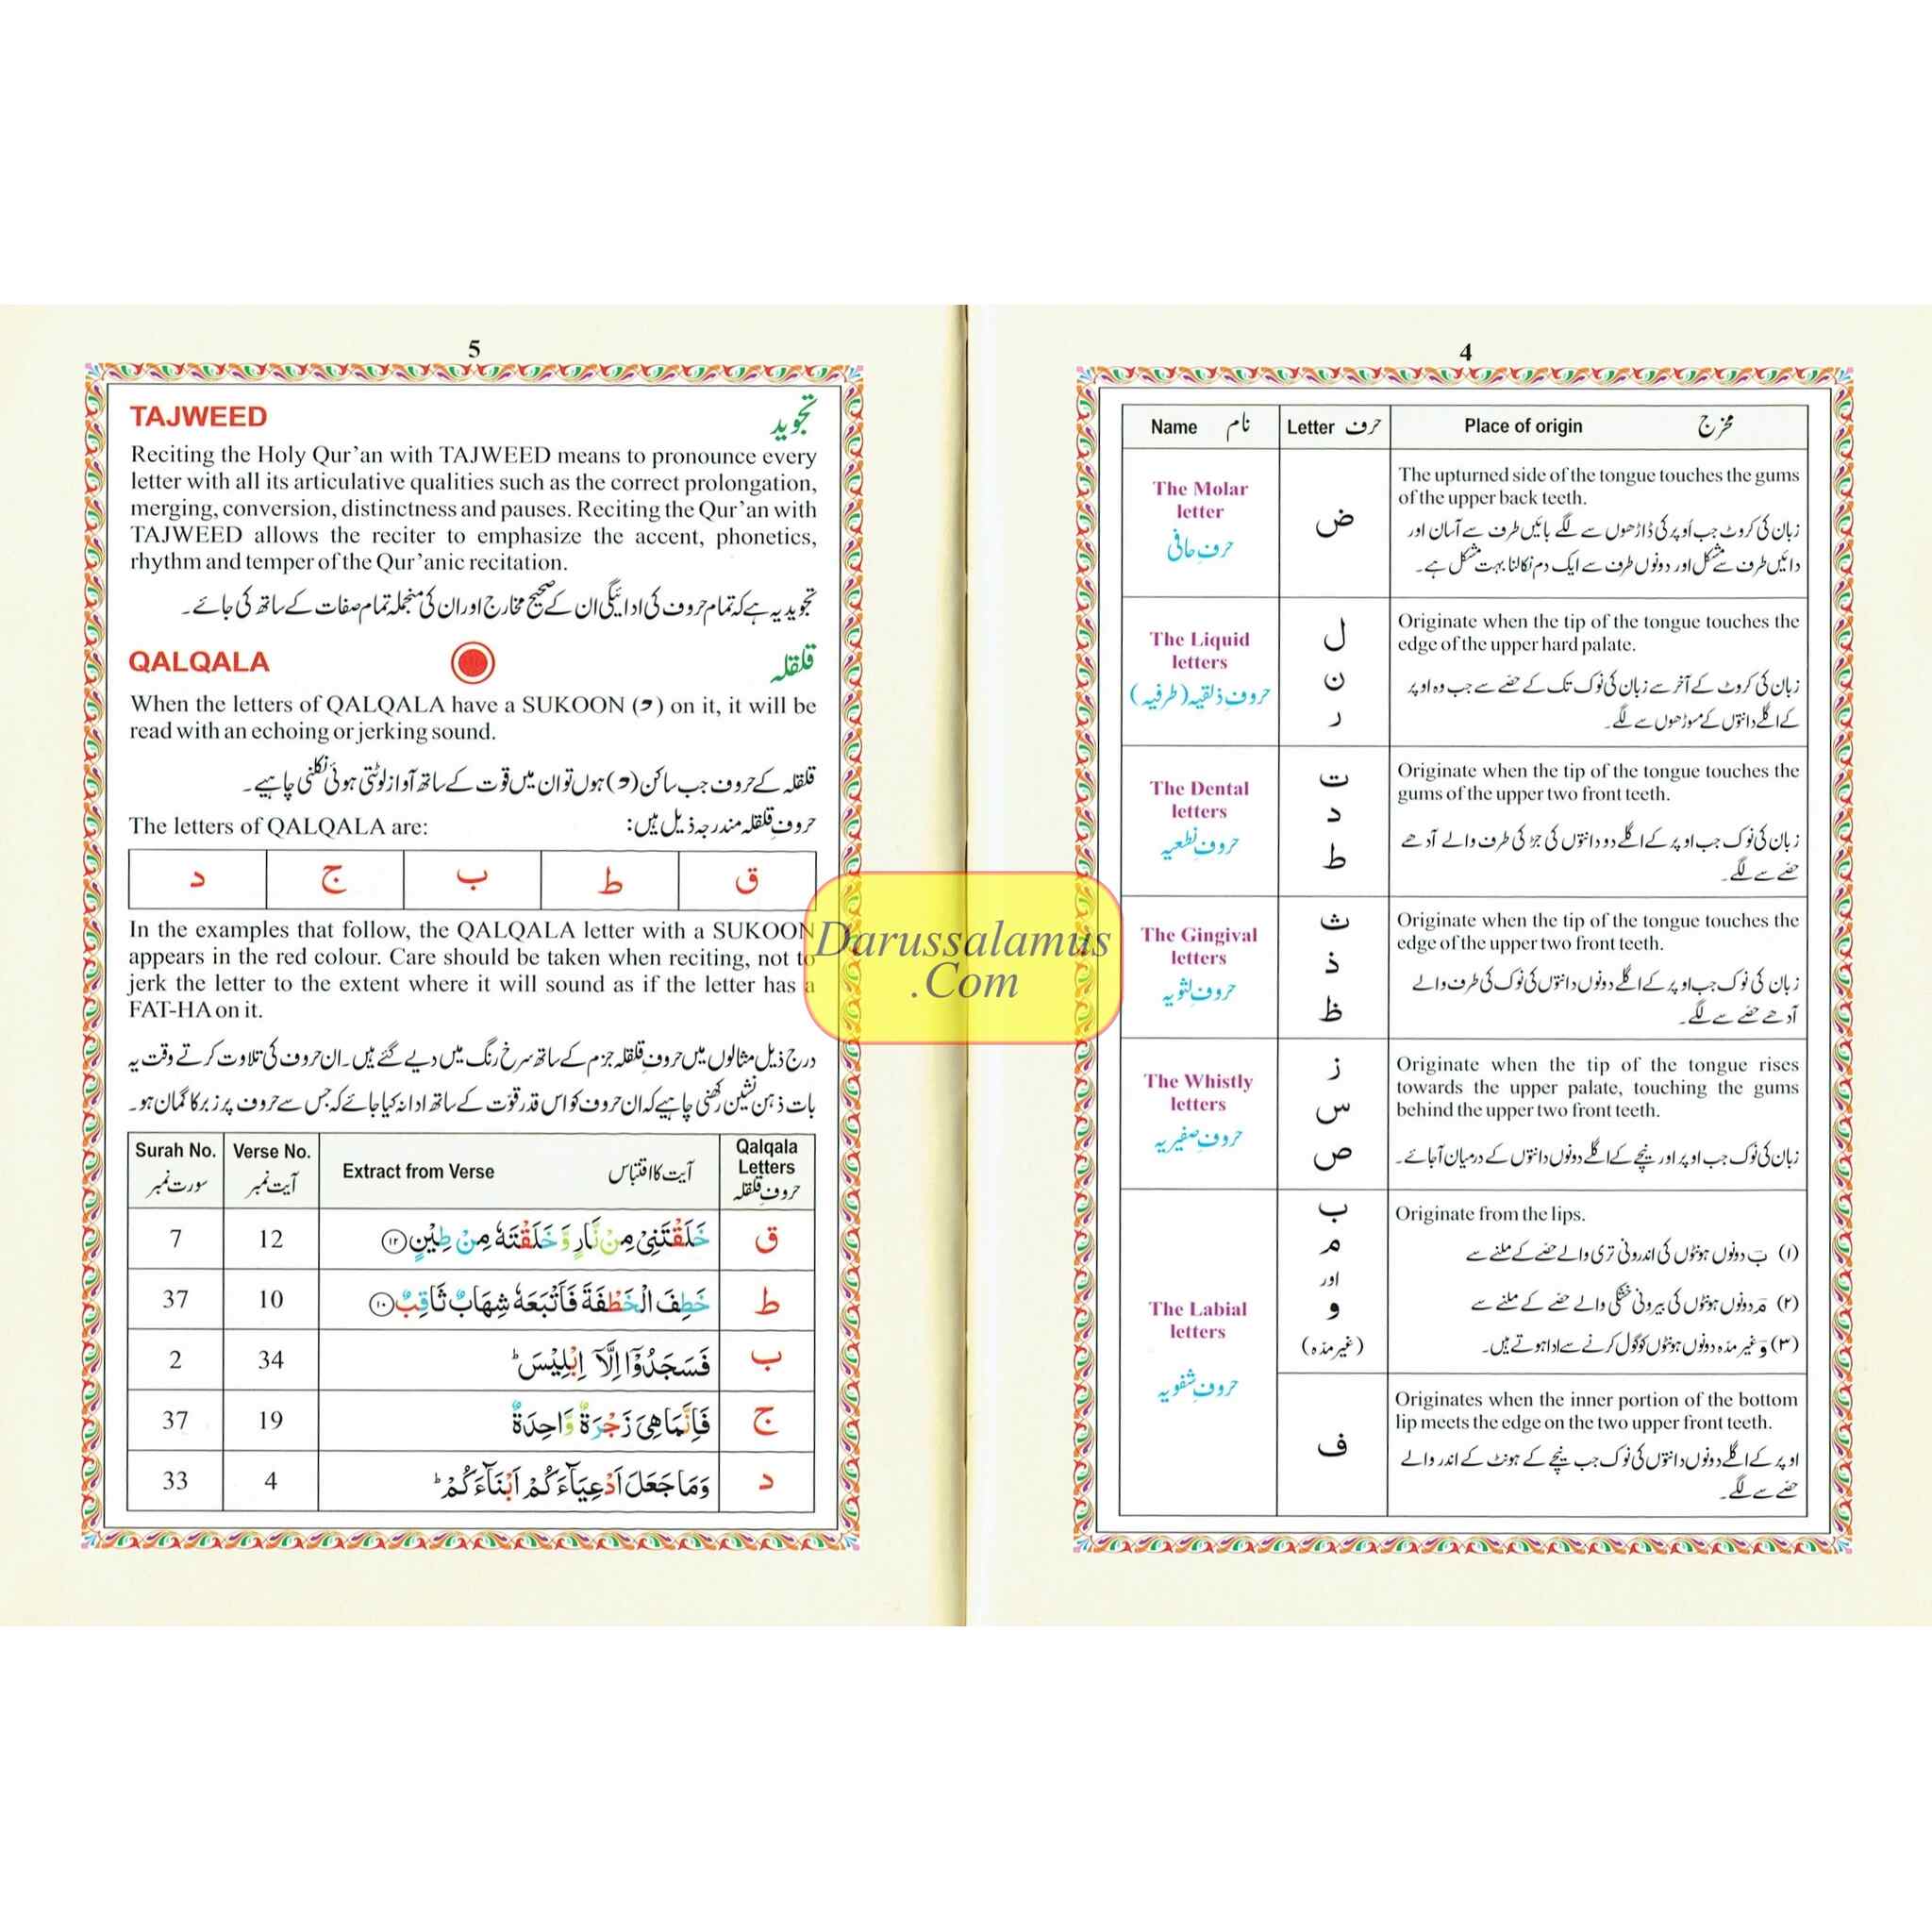 4
Name نام Letter حرف Place of origin مخرج
The Molar
letter
حرفِ حافی
ض
The upturned side of the tongue touches the gums
of the upper back teeth.
زبان کی کروٹ جب اُوپر کی ڈاڑھوں سے لگے بائیں طرف سے آسان اور
دائیں طرف سے مشکل اور دونوں طرف سے ایک دم نکالنا بہت مشکل ہے۔
The Liquid
letters
حروفِ ذلقیہ (طرفیہ)
ل
ن
ر
Originate when the tip of the tongue touches the
edge of the upper hard palate.
زبان کی کروٹ کے آخر سے زبان کی نوک تک کے حصّے سے جب وہ اوپر
کے اگلے دانتوں کے مسوڑھوں سے لگے۔
The Dental
letters
حروفِ نطعیہ
ت
د
ط
Originate when the tip of the tongue touches the
gums of the upper two front teeth.
زبان کی نوک جب اوپر کے اگلے دو دانتوں کی جڑ کی طرف والے آدھے
حصّے سے لگے۔
The Gingival
letters
حروفِ لثویہ
ث
ذ
ظ
Originate when the tip of the tongue touches the
edge of the upper two front teeth.
زبان کی نوک جب اوپر کے اگلے دونوں دانتوں کی نوک کی طرف والے
آدھے حصّے سے لگے۔
The Whistly
letters
حروفِ صفیریہ
ز
س
ص
Originate when the tip of the tongue rises
towards the upper palate, touching the gums
behind the upper two front teeth.
زبان کی نوک جب اوپر اور نیچے کے اگلے دونوں دانتوں کے درمیان آجائے۔
The Labial
letters
حروفِ شفویہ
ب
م
اور
و
(غیر مدّہ)
Originate from the lips.
(۱) بَ دونوں ہونٹوں کی اندرونی تری والے حصّے کے ملنے سے
(۲) مَ دونوں ہونٹوں کی بیرونی خشکی والے حصّے کے ملنے سے
(۳) وَ غیر مدّہ دونوں ہونٹوں کو گول کرنے سے ادا ہوتے ہیں۔
ف
Originates when the inner portion of the bottom
lip meets the edge on the two upper front teeth.
اوپر کے اگلے دونوں دانتوں کی نوک جب نیچے کے ہونٹ کے اندر والے
حصّے سے لگے۔
5
TAJWEED تجوید
Reciting the Holy Qur’an with TAJWEED means to pronounce every
letter with all its articulative qualities such as the correct prolongation,
merging, conversion, distinctness and pauses. Reciting the Qur’an with
TAJWEED allows the reciter to emphasize the accent, phonetics,
rhythm and temper of the Qur’anic recitation.
تجوید یہ ہے کہ تمام حروف کی ادائیگی ان کے صحیح مخارج اور ان کی منجملہ تمام صفات کے ساتھ کی جائے۔
QALQALA قلقلہ
When the letters of QALQALA have a SUKOON (ـْ) on it, it will be
read with an echoing or jerking sound.
قلقلہ کے حروف جب ساکن (ـْ) ہوں تو ان میں قوت کے ساتھ آواز لوٹتی ہوئی نکلنی چاہیے۔
The letters of QALQALA are: حروفِ قلقلہ مندرجہ ذیل ہیں:
ق ط ب ج د
In the examples that follow, the QALQALA letter with a SUKOON
appears in the red colour. Care should be taken when reciting, not to
jerk the letter to the extent where it will sound as if the letter has a
FAT-HA on it.
درج ذیل مثالوں میں حروفِ قلقلہ جزم کے ساتھ سرخ رنگ میں دیے گئے ہیں۔ ان حروف کی تلاوت کرتے وقت یہ
بات ذہن نشین رکھنی چاہیے کہ ان حروف کو اس قدر قوّت کے ساتھ ادا نہ کیا جائے کہ جس سے حروف پر زبر کا گمان ہو۔
Surah No. Verse No. Extract from Verse آیت کا اقتباس Qalqala
Letters
سورت نمبر آیت نمبر حروفِ قلقلہ
7 12 خَلَقْتَنِىْ مِنْ نَّارٍ وَّخَلَقْتَهٗ مِنْ طِيْنٍ ۝۱۲ ق
37 10 خَطِفَ الْخَطْفَةَ فَاَتْبَعَهٗ شِهَابٌ ثَاقِبٌ ۝۱۰ ط
2 34 فَسَجَدُوْٓا اِلَّآ اِبْلِيْسَ ؕ ب
37 19 فَاِنَّمَا هِىَ زَجْرَةٌ وَّاحِدَةٌ ج
33 4 وَمَا جَعَلَ اَدْعِيَآءَكُمْ اَبْنَآءَكُمْ ؕ د
Darussalamus
.Com